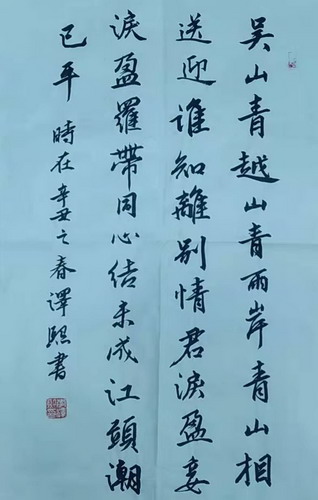 吴山青越山青雨岸青山相
送迎谁知離别情君淚盈妾
淚盈羅帶同心结未成江頭潮
已平 時在辛丑之春澤熙書